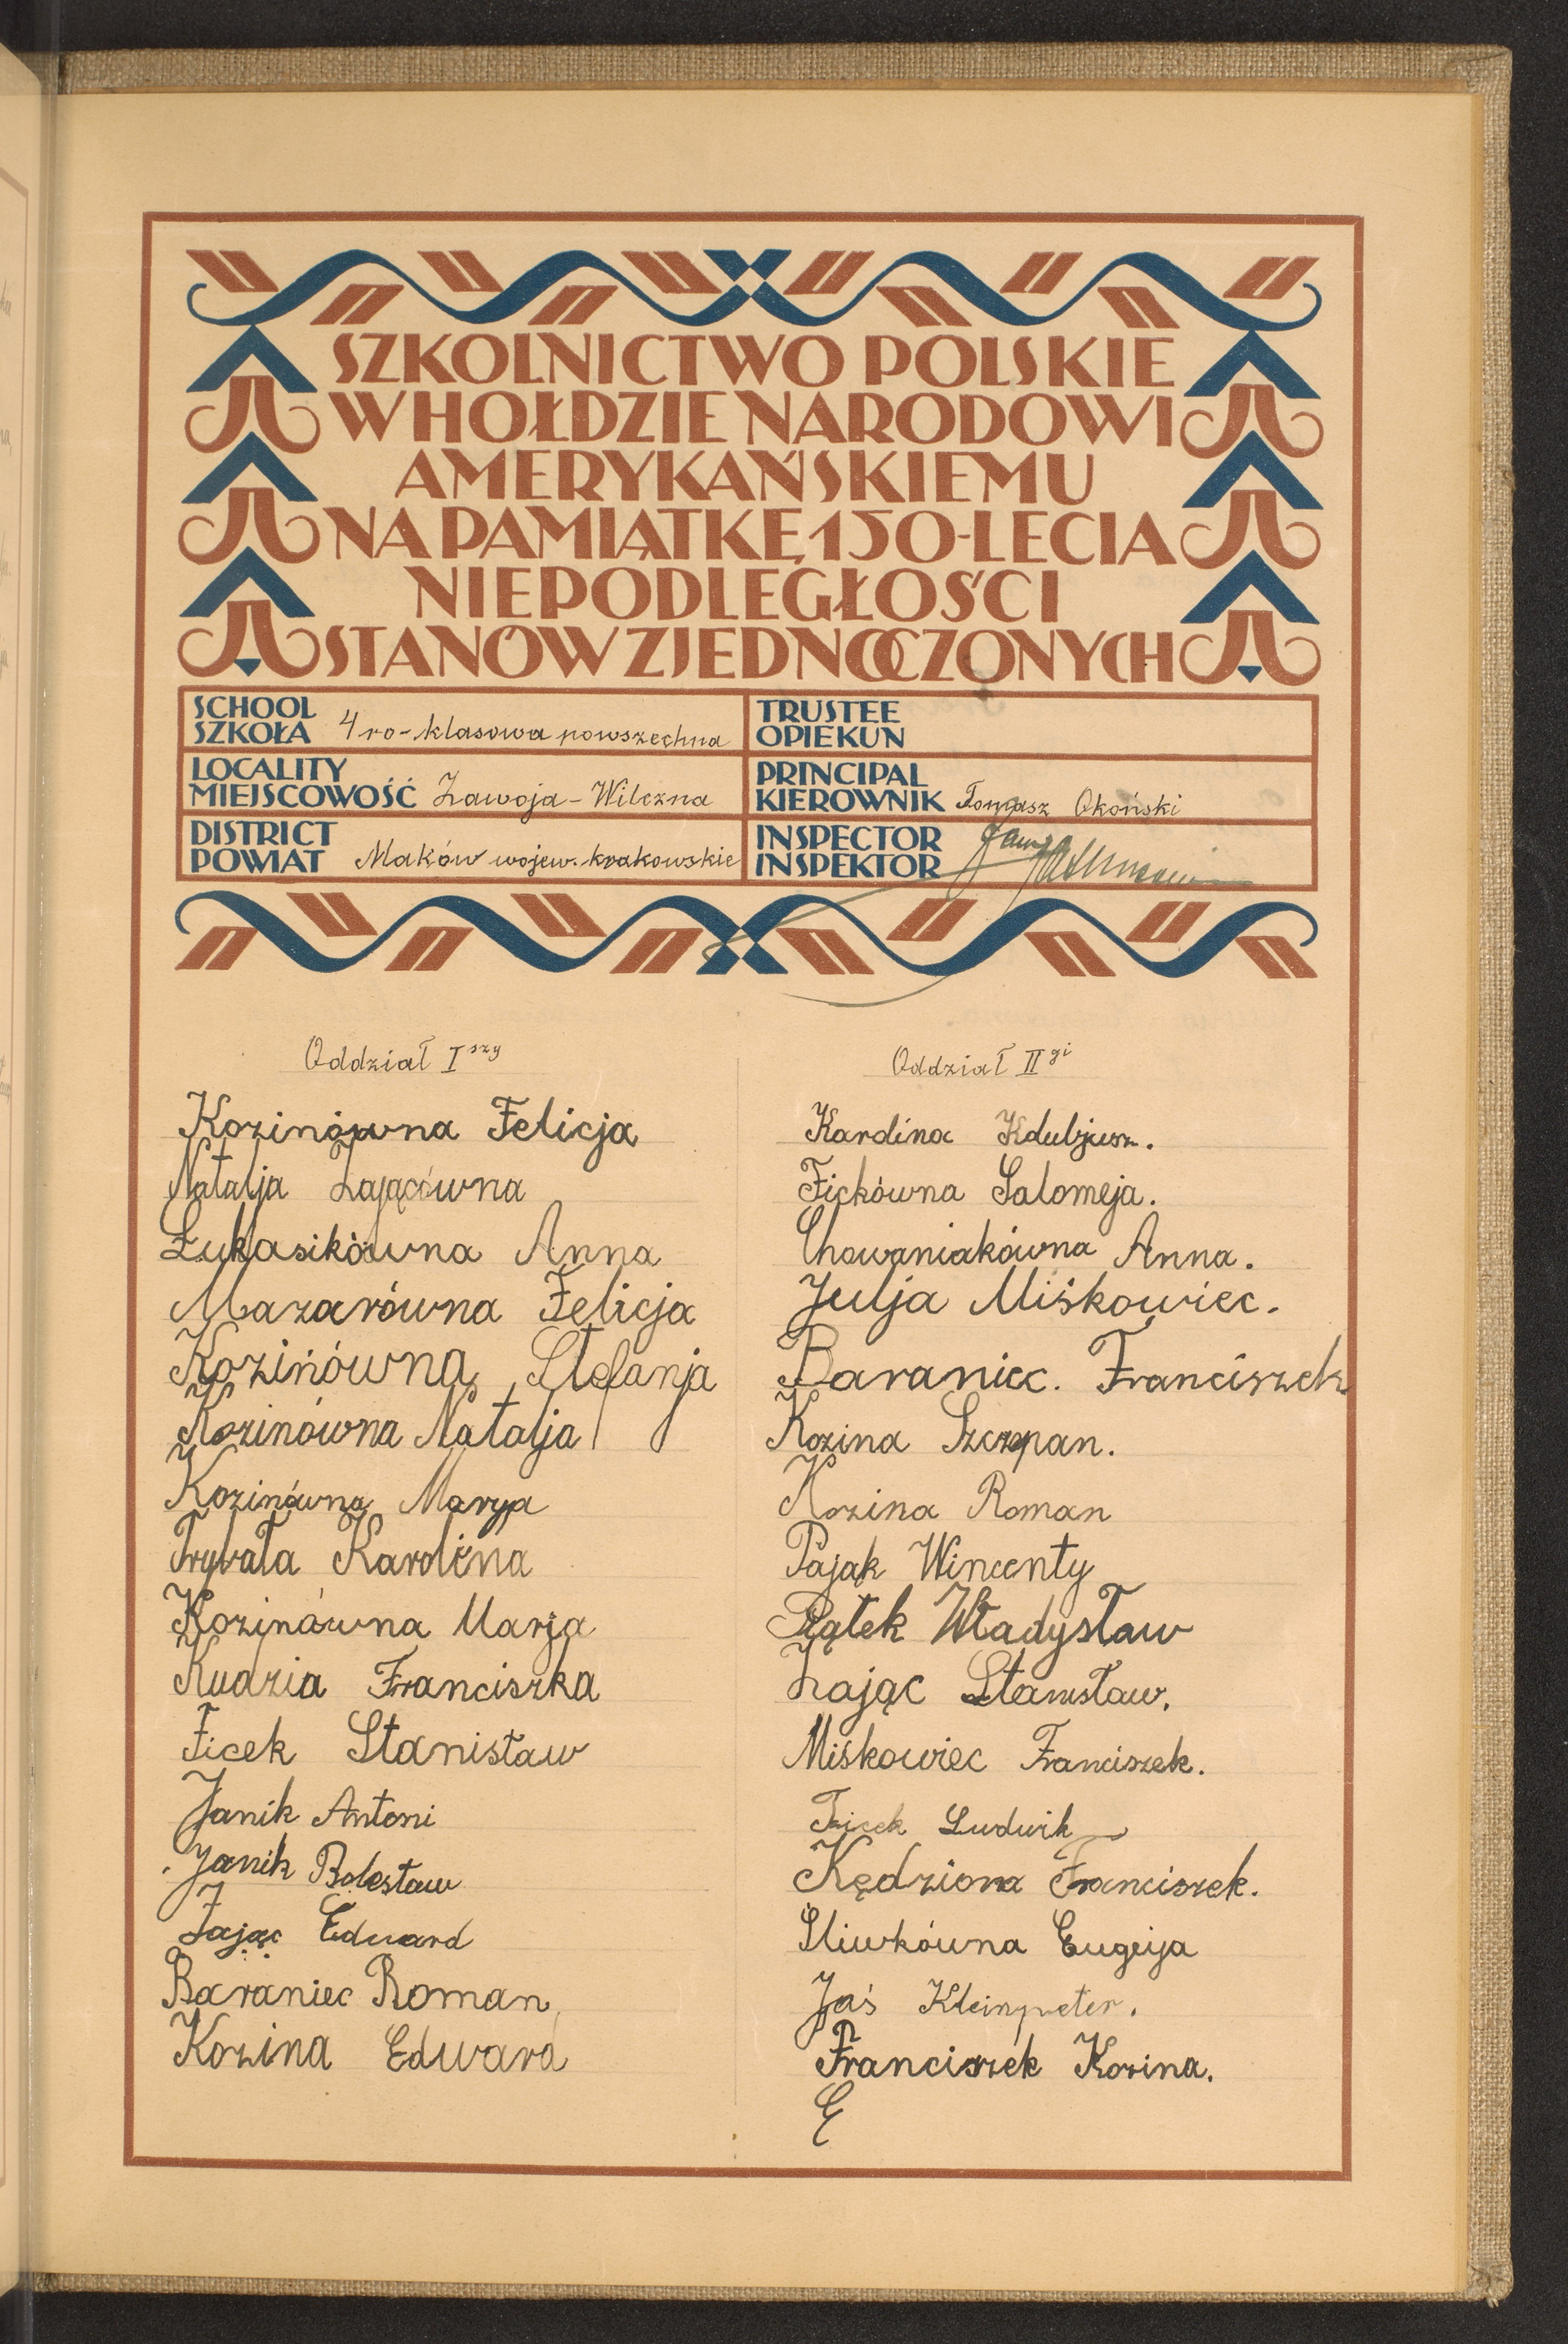 SZKOLNICTWO POLSKIE
W HOŁDZIE NARODOWI
AMERYKAŃSKIEMU
NA PAMIĄTKĘ 150-LECIA
NIEPODLEGŁOŚCI
STANÓW ZJEDNOCZONYCH
SCHOOL
SZKOŁA 4ro-klasowa powszechna
LOCALITY
MIEJSCOWOŚĆ Zawoja-Wilczna
DISTRICT
POWIAT Maków wojew. krakowskie
TRUSTEE
OPIEKUN
PRINCIPAL
KIEROWNIK Tomasz Okoński
INSPECTOR
INSPEKTOR
Oddział I szy
Kozinówna Felicja
Natalja Zającówna
Łukasikówna Anna
Mazarówna Felicja
Kozinówna Stefanja
Kozinówna Natalja
Kozinówna Marya
Trybała Karolina
Kozinówna Marja
Kudzia Franciszka
Ficek Stanisław
Janik Antoni
Janik Bolesław
Zając Eduard
Baraniec Roman
Kozina Edward
Oddział II gi
Kardina
Fickówna Salomeja.
Chowaniakówna Anna.
Julja Miśkowiec.
Baraniec. Franciszek
Kozina Szczepan.
Kozina Roman
Pająk Wincenty
Piątek Władysław
Zając Stanisław.
Miśkowiec Franciszek.
Ficek Ludwik
Kędziora Franciszek.
Śliwkówna Eugeija
Jaś Kleinpreter.
Franciszek Kozina.
E